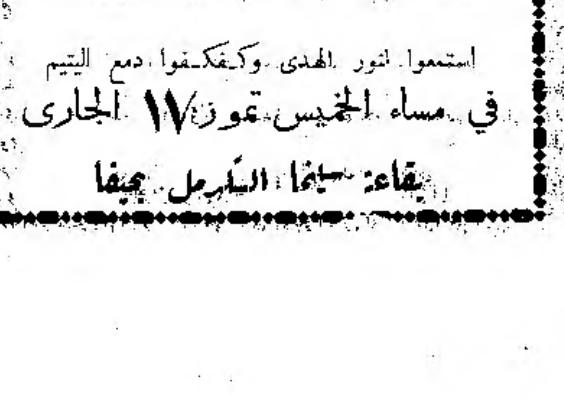 استمعوا لنور الهدى وكفكفوا دمع اليتيم
في مساء الخميس تموز ١٧ الجاري
بقاعة سينما الكرمل بحيفا